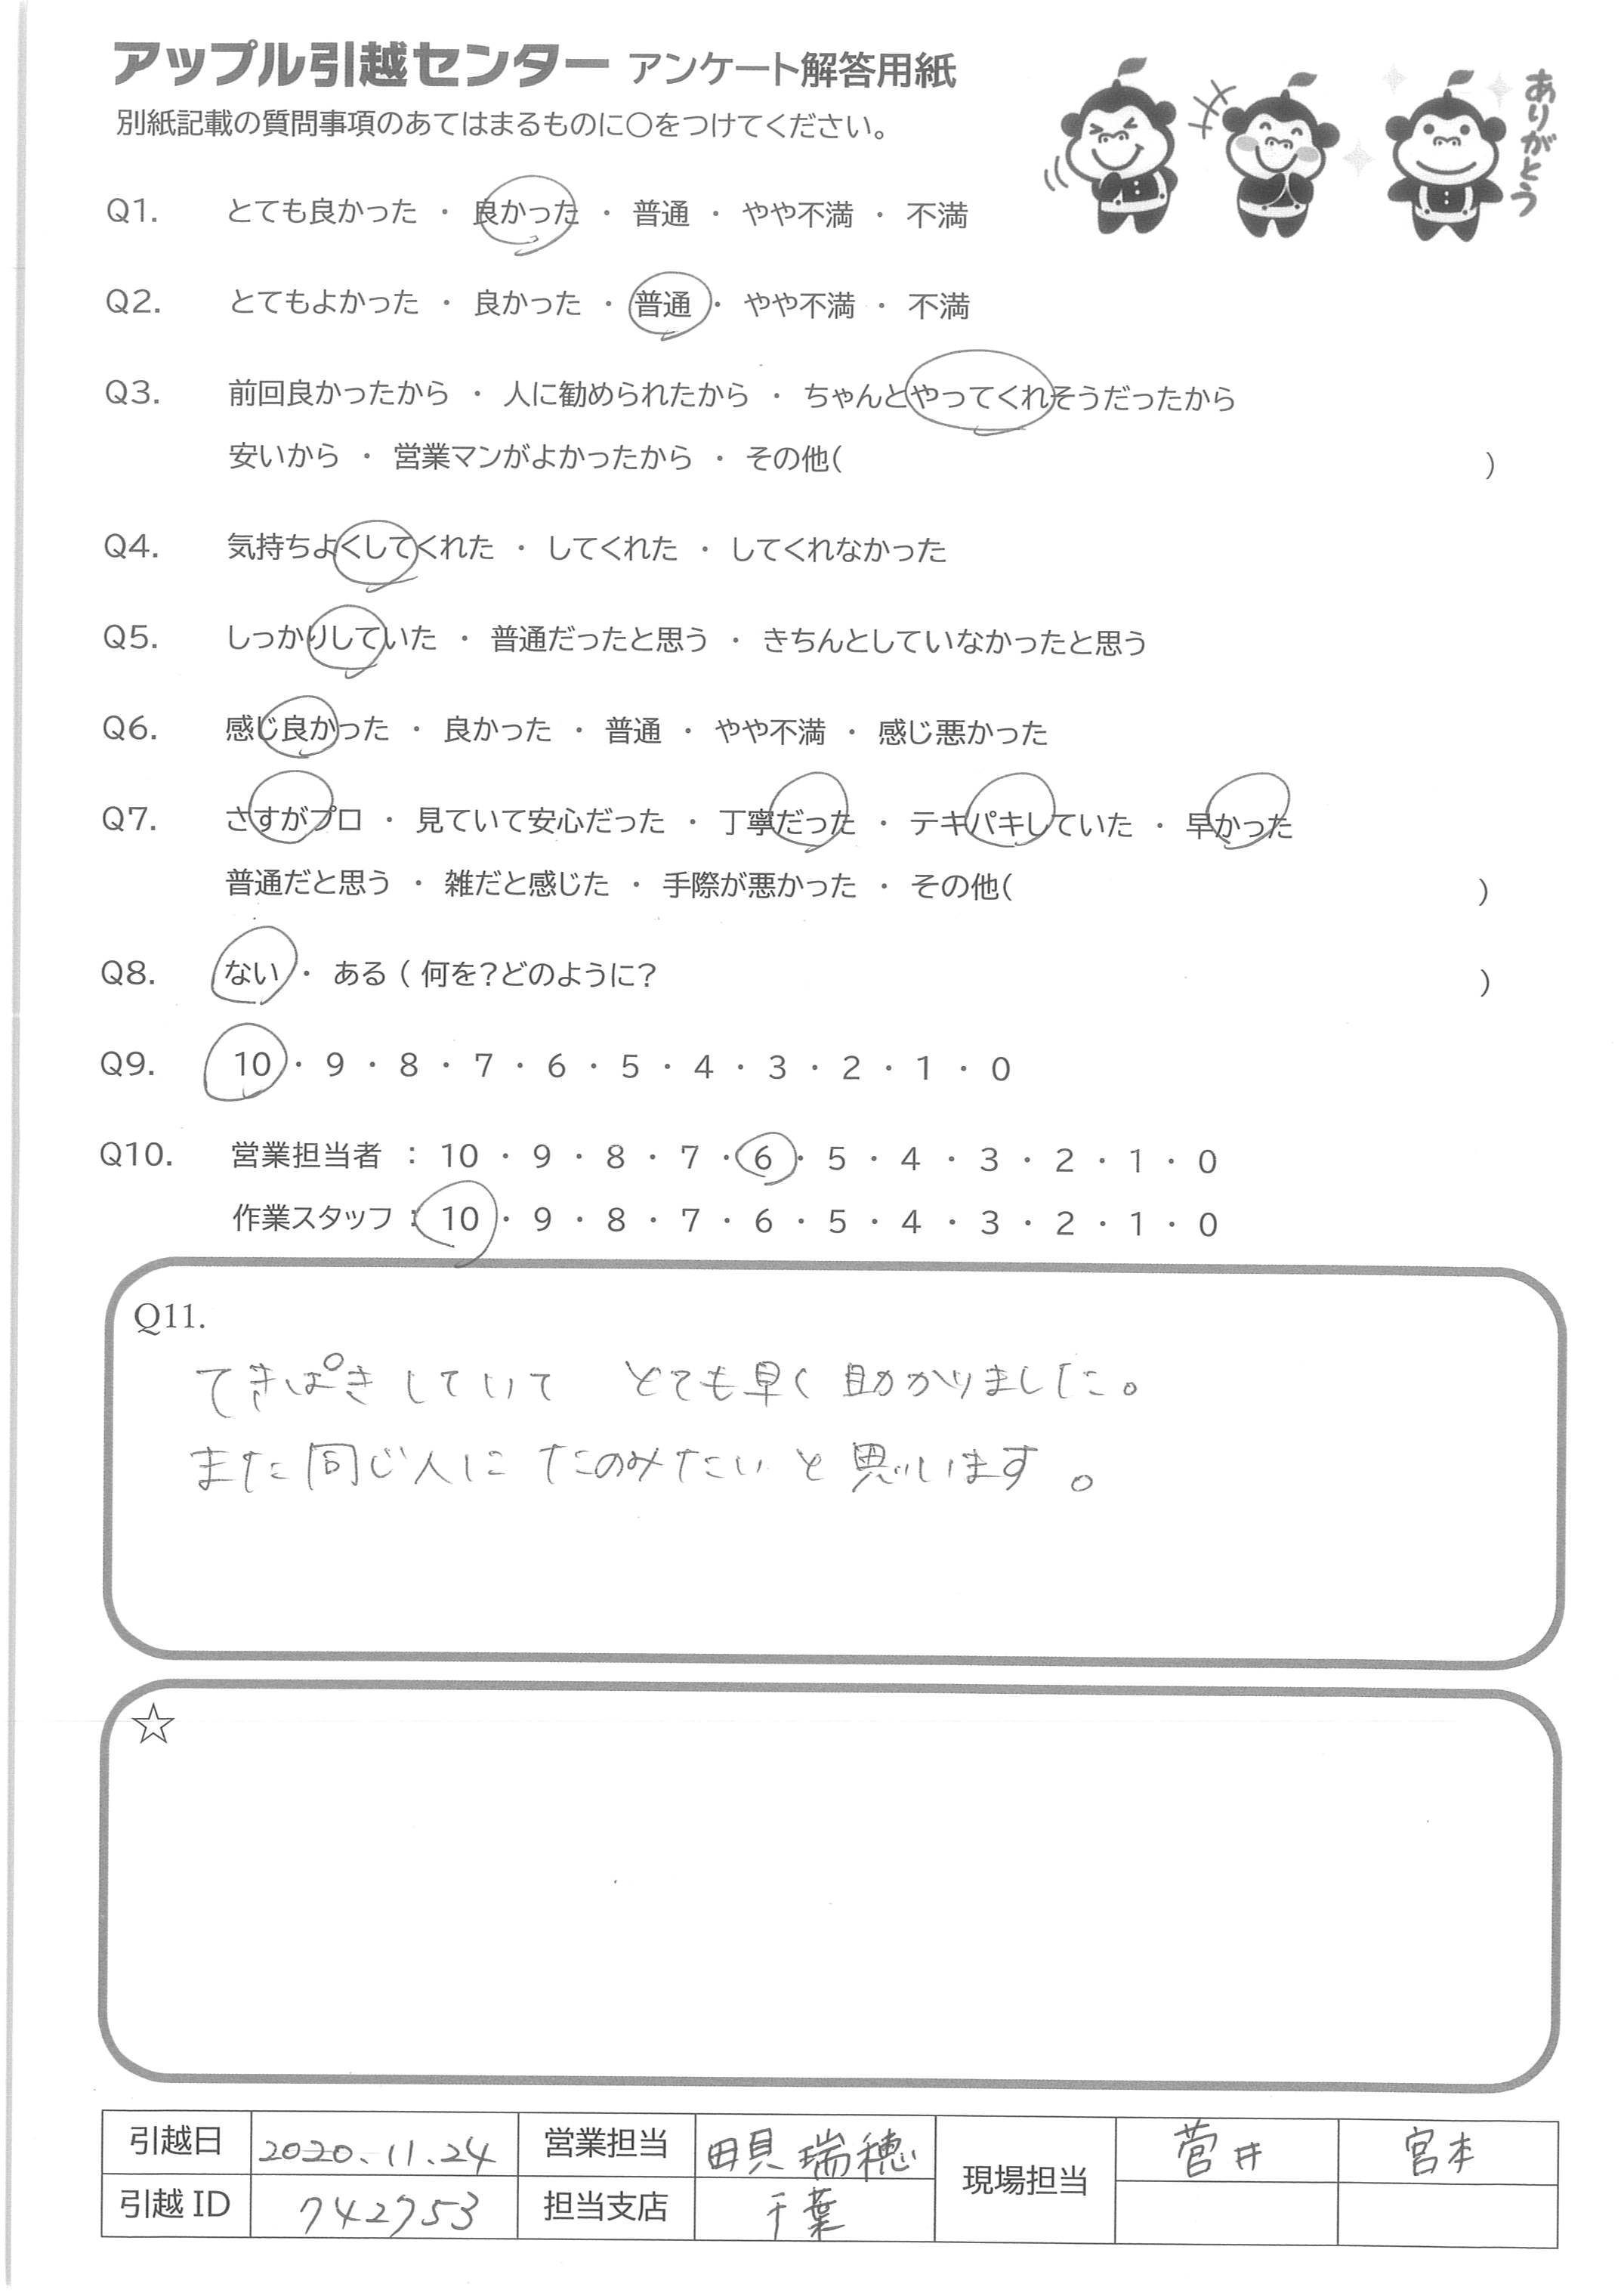 アップル引越センター アンケート解答用紙
別紙記載の質問事項のあてはまるものに○をつけてください。
ありがとう
Q1. とても良かった ・ 良かった ・ 普通 ・ やや不満 ・ 不満
Q2. とてもよかった ・ 良かった ・ 普通 ・ やや不満 ・ 不満
Q3. 前回良かったから ・ 人に勧められたから ・ ちゃんとやってくれそうだったから
安いから ・ 営業マンがよかったから ・ その他( )
Q4. 気持ちよくしてくれた ・ してくれた ・ してくれなかった
Q5. しっかりしていた ・ 普通だったと思う ・ きちんとしていなかったと思う
Q6. 感じ良かった ・ 良かった ・ 普通 ・ やや不満 ・ 感じ悪かった
Q7. さすがプロ ・ 見ていて安心だった ・ 丁寧だった ・ テキパキしていた ・ 早かった
普通だと思う ・ 雑だと感じた ・ 手際が悪かった ・ その他( )
Q8. ない ・ ある ( 何を?どのように? )
Q9. 10 ・ 9 ・ 8 ・ 7 ・ 6 ・ 5 ・ 4 ・ 3 ・ 2 ・ 1 ・ 0
Q10. 営業担当者 : 10 ・ 9 ・ 8 ・ 7 ・ 6 ・ 5 ・ 4 ・ 3 ・ 2 ・ 1 ・ 0
作業スタッフ : 10 ・ 9 ・ 8 ・ 7 ・ 6 ・ 5 ・ 4 ・ 3 ・ 2 ・ 1 ・ 0
Q11.
てきぱきしていて とても早く助かりました。
また同じ人に たのみたいと思います。
☆
引越日 2020.11.24 営業担当 瑞穂 現場担当 菅井 宮本
引越 ID 742753 担当支店 千葉